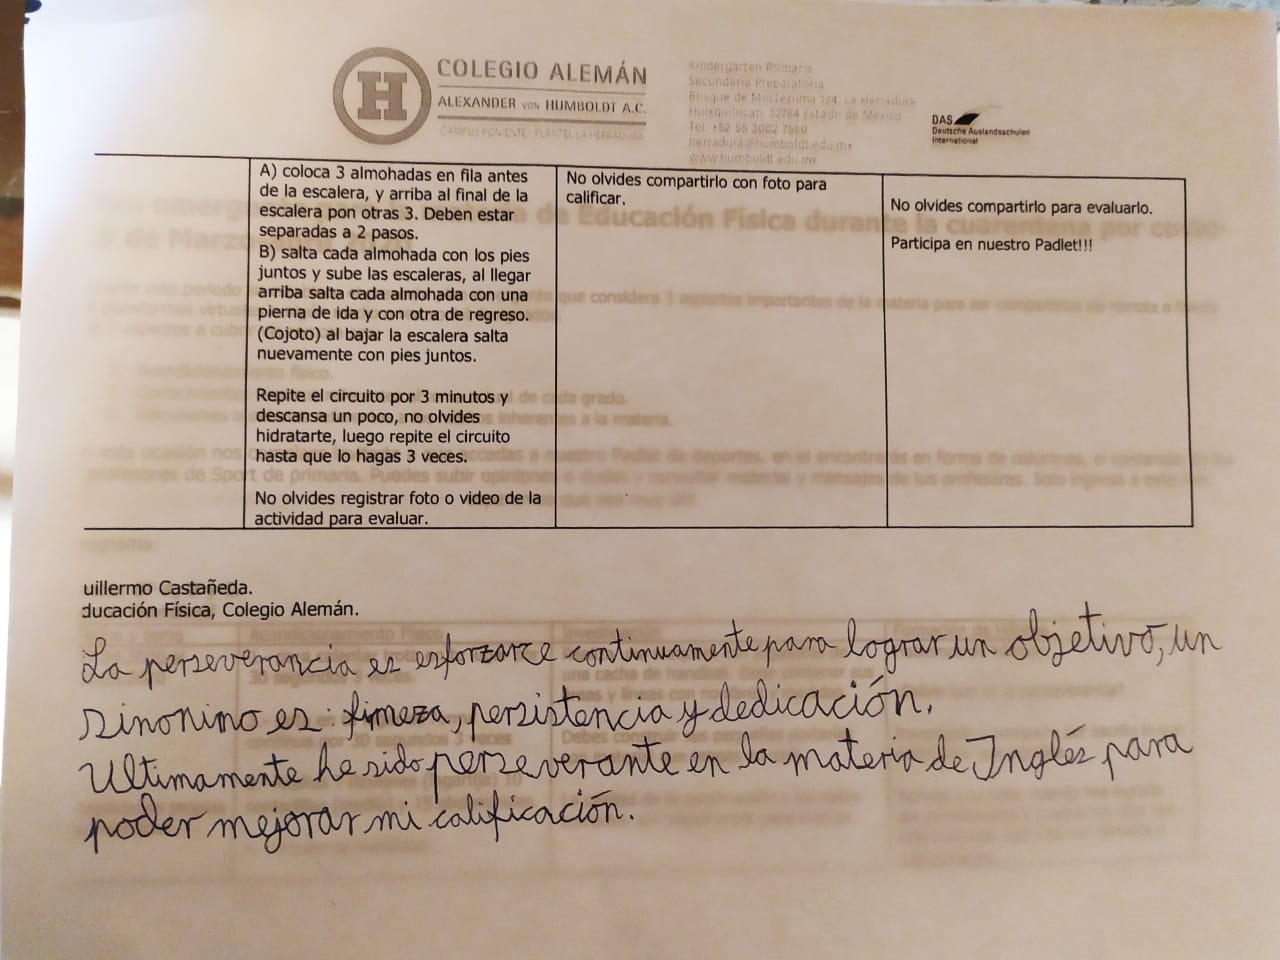 COLEGIO ALEMÁN
ALEXANDER VON HUMBOLDT A.C.
CAMPUS PONIENTE - PLANTEL LA HERRADURA
Kindergarten Primaria
Secundaria Preparatoria
Bosque de Moctezuma 124, La Herradura
Huixquilucan, 52784 Estado de México
Tel. +52 55 3002 7560
herradura@humboldt.edu.mx
www.humboldt.edu.mx
DAS
Deutsche Auslandsschulen
International
A) coloca 3 almohadas en fila antes
de la escalera, y arriba al final de la
escalera pon otras 3. Deben estar
separadas a 2 pasos.
B) salta cada almohada con los pies
juntos y sube las escaleras, al llegar
arriba salta cada almohada con una
pierna de ida y con otra de regreso.
(Cojoto) al bajar la escalera salta
nuevamente con pies juntos.
Repite el circuito por 3 minutos y
descansa un poco, no olvides
hidratarte, luego repite el circuito
hasta que lo hagas 3 veces.
No olvides registrar foto o video de la
actividad para evaluar.
No olvides compartirlo con foto para
calificar.
No olvides compartirlo para evaluarlo.
Participa en nuestro Padlet!!!
uillermo Castañeda.
ducación Física, Colegio Alemán.
La perseverancia es esforzarce continuamente para lograr un objetivo, un
sinonino es: fimeza, persistencia y dedicación.
Ultimamente he sido perseverante en la materia de Inglés para
poder mejorar mi calificación.